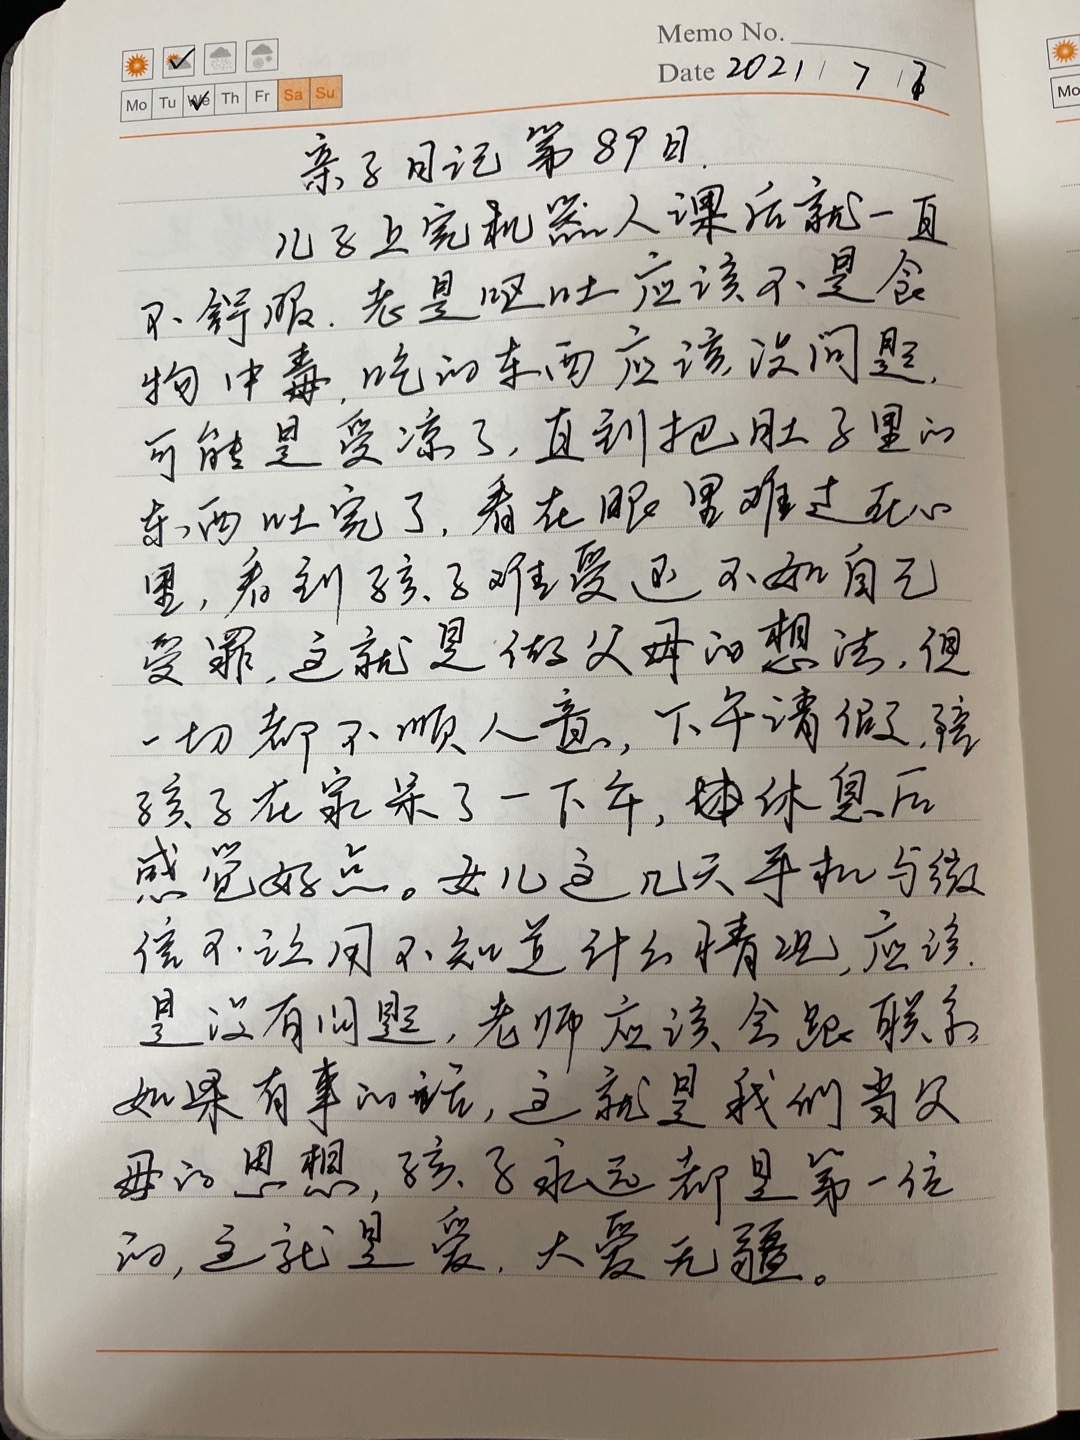 Memo No.
Mo Tu We Th Fr Sa Su
Date 2021 / 7 /
Mo
亲子日记第89日.
儿子上完机器人课后就一直
不舒服.老是呕吐应该不是食
物中毒,吃的东西应该没问题,
可能是受凉了,直到把肚子里的
东西吐完了,看在眼里难过在心
里,看到孩子难受还不如自己
受罪,这就是做父母的想法,但
一切都不顺人意,下午请假,陪
孩子在家呆了一下午,休息后
感觉好点。女儿这几天手机与微
信不让用不知道什么情况,应该
是没有问题,老师应该会跟联系
如果有事的话,这就是我们当父
母的思想,孩子永远都是第一位
的,这就是爱,大爱无疆。